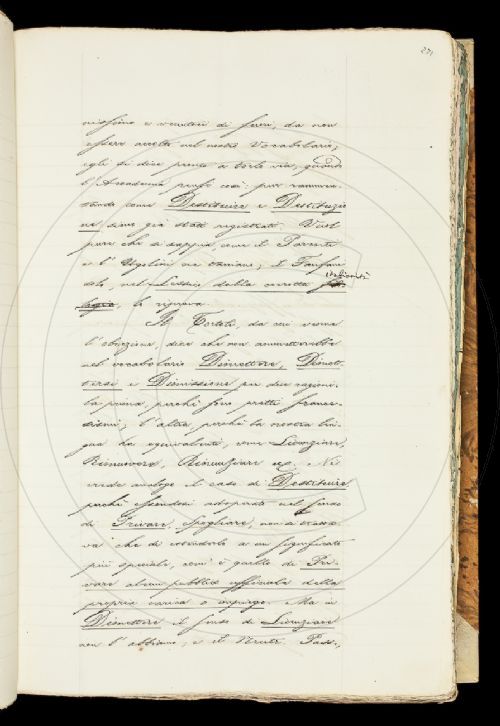 271
missione e venduti di fuori, da non
essere accolta nel nostro Vocabolario;
egli si dice pronto a torle via, quando
l'Accademia pensi così: pur rammen-
tando come Destituire e Destituzio
ne siano già stati registrati. Vuol
pure che si sappia, come il Parenti
e l'Ugolini ne tacciano; e il Fanfani
italianità
solo, nel Lessico della corrotta
, la riprova.
Il Tortoli, da cui venne
l'obiezione, dice che non ammetterebbe
nel vocabolario Dimettere, Dimet-
tersi e Dimissione per due ragioni:
la prima, perchè sono pretti france-
sismi; l'altra, perchè la nostra lin-
gua ha equivalenti, come Licenziare,
Rimuovere, Rinunziare ecc. Nè
crede analogo il caso di Destituire
perchè essendosi adoperato nel senso
di Privare, Spogliare, non si tratta-
va che di estenderlo a un significato
più speciale, com'è quello di Pri-
vare alcun pubblico officiale della
propria carica o impiego. Ma in
Dimettere il senso di Licenziare
non l'abbiamo, e il